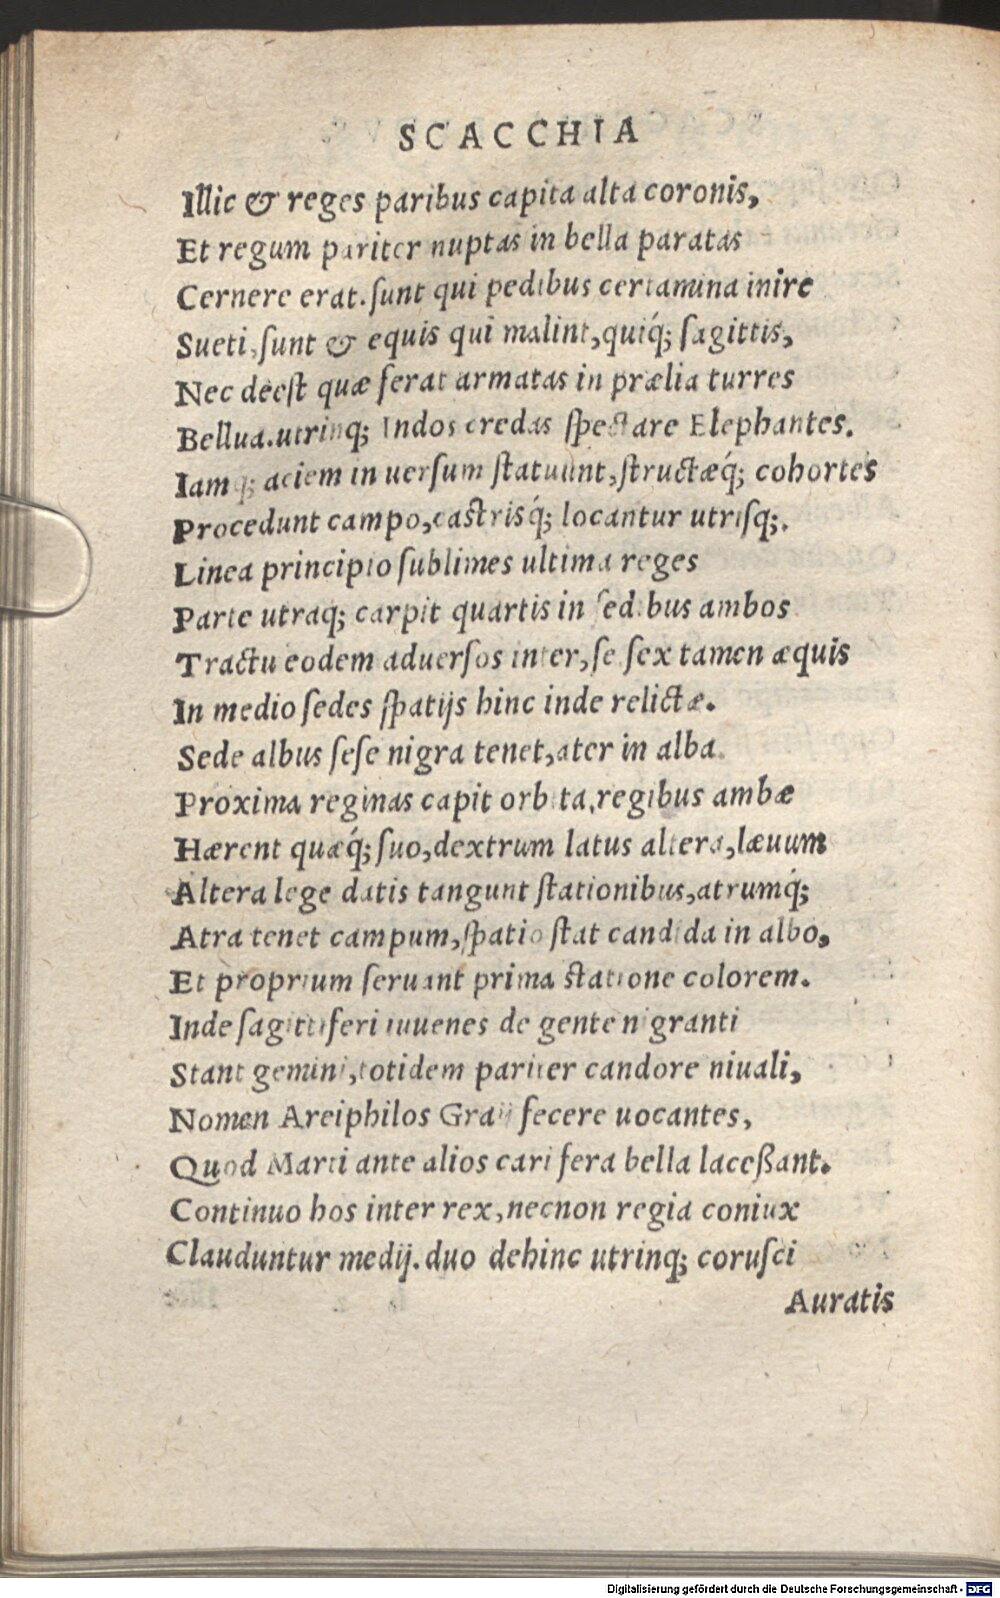 SCACCHIA
Illic & reges paribus capita alta coronis,
Et regum pariter nuptas in bella paratas
Cernere erat. sunt qui pedibus certamina inire
Sueti, sunt & equis qui malint, quiq́; sagittis,
Nec deest quæ ferat armatas in prælia turres
Bellua. utrinq; Indos credas spectare Elephantes.
Iamq; aciem in uersum statuunt, structæq́; cohortes
Procedunt campo, castrisq́; locantur utrisq;.
Linea principio sublimes ultima reges
Parte utraq; carpit quartis in sedibus ambos
Tractu eodem aduersos inter, se sex tamen æquis
In medio sedes spatijs hinc inde relictæ.
Sede albus sese nigra tenet, ater in alba.
Proxima reginas capit orbita, regibus ambæ
Hærent quæq́; suo, dextrum latus altera, læuum
Altera lege datis tangunt stationibus, atrumq́;
Atra tenet campum, spatio stat candida in albo,
Et proprium seruant prima statione colorem.
Inde sagittiferi iuuenes de gente nigranti
Stant gemini, totidem pariter candore niuali,
Nomen Areiphilos Graij fecere uocantes,
Quod Marti ante alios cari fera bella laceßant.
Continuo hos inter rex, necnon regia coniux
Clauduntur medij. duo dehinc utrinq; corusci
Auratis
Digitalisierung gefördert durch die Deutsche Forschungsgemeinschaft - DFG